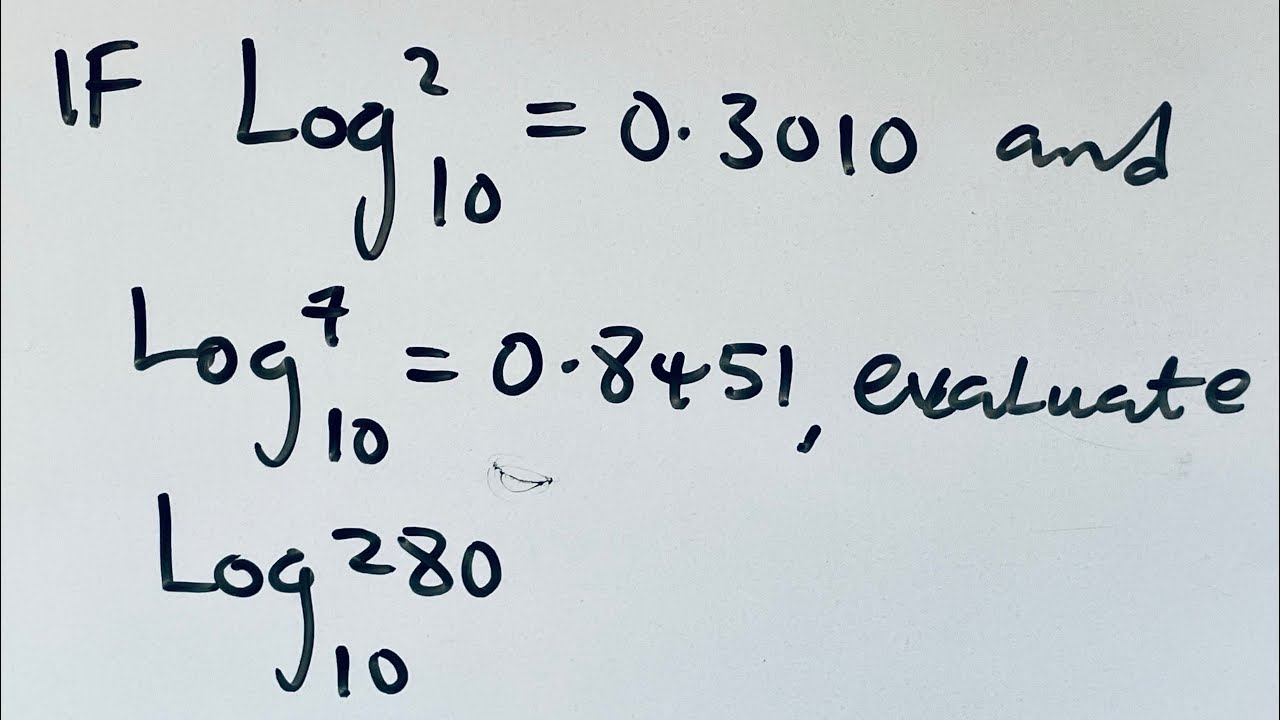 IF Log²₁₀ = 0.3010 and
Log⁷₁₀ = 0.8451, evaluate
Log²⁸⁰₁₀